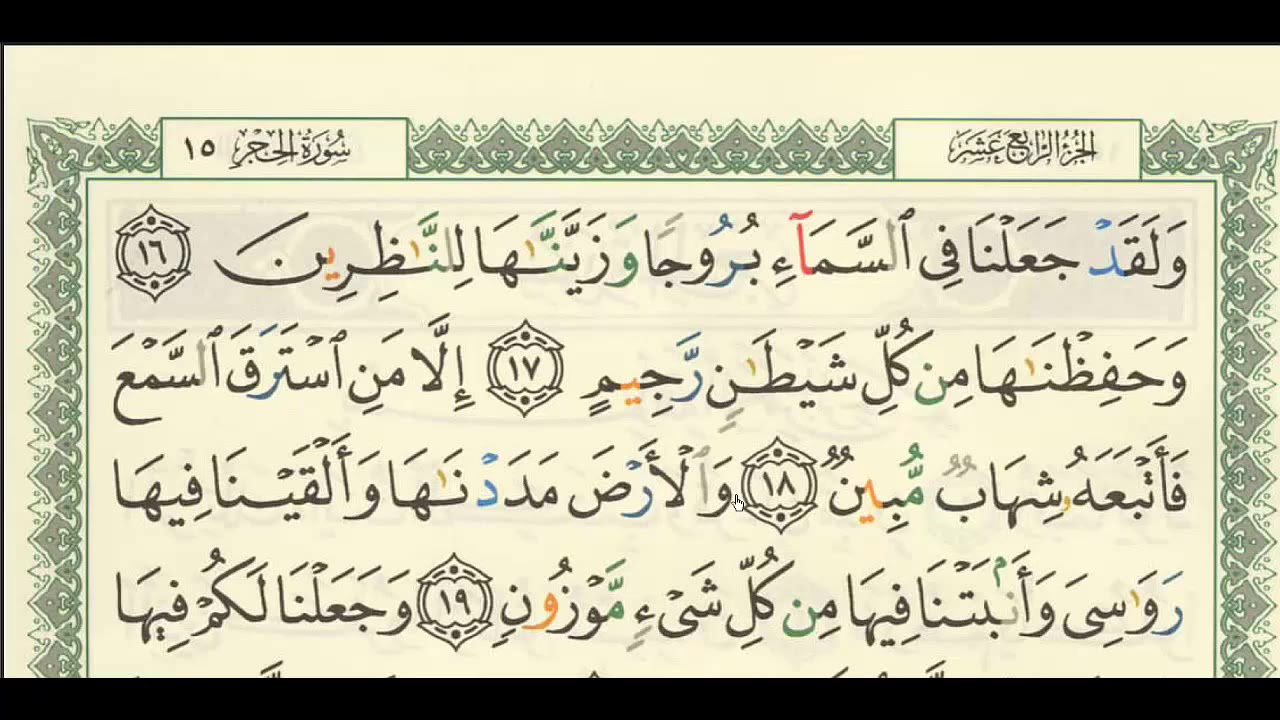 الجزء الرابع عشر
سورة الحجر ١٥
وَلَقَدْ جَعَلْنَا فِى ٱلسَّمَآءِ بُرُوجًا وَزَيَّنَّٰهَا لِلنَّٰظِرِينَ ١٦
وَحَفِظْنَٰهَا مِن كُلِّ شَيْطَٰنٍ رَّجِيمٍ ١٧ إِلَّا مَنِ ٱسْتَرَقَ ٱلسَّمْعَ
فَأَتْبَعَهُۥ شِهَابٌ مُّبِينٌ ١٨ وَٱلْأَرْضَ مَدَدْنَٰهَا وَأَلْقَيْنَا فِيهَا
رَوَٰسِىَ وَأَنۢبَتْنَا فِيهَا مِن كُلِّ شَىْءٍ مَّوْزُونٍ ١٩ وَجَعَلْنَا لَكُمْ فِيهَا